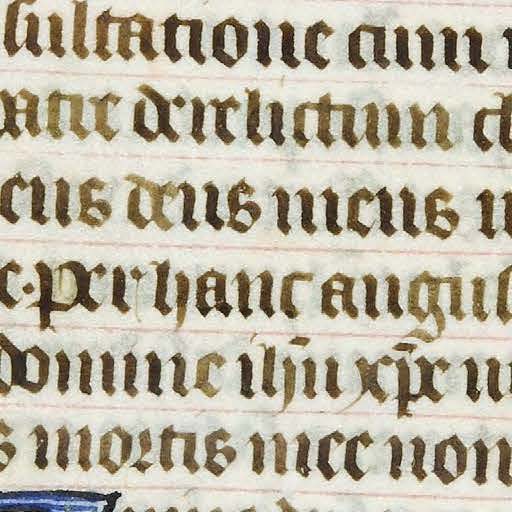 sultatione cum
atie derelictum
eus deus meus
per hanc angus
domine ihu xpe
mortis mee non